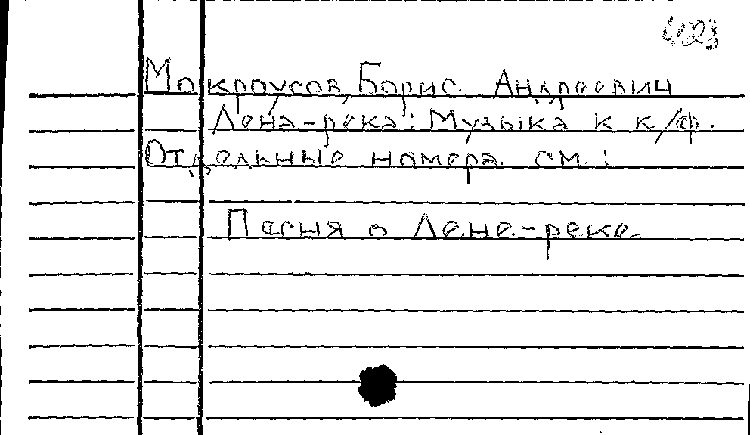 Мокроусов, Борис Андреевич
Лена-река: Музыка к к/ф.
Отдельные номера см.:
Песня о Лене-реке.